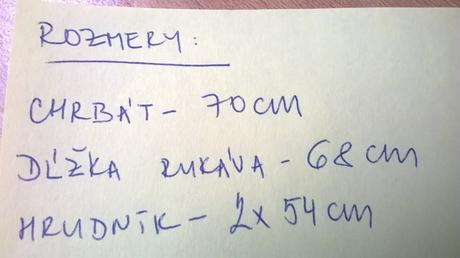 ROZMERY:
CHRBÁT - 70 cm
DĹŽKA RUKÁVA - 68 cm
HRUDNÍK - 2x 54 cm